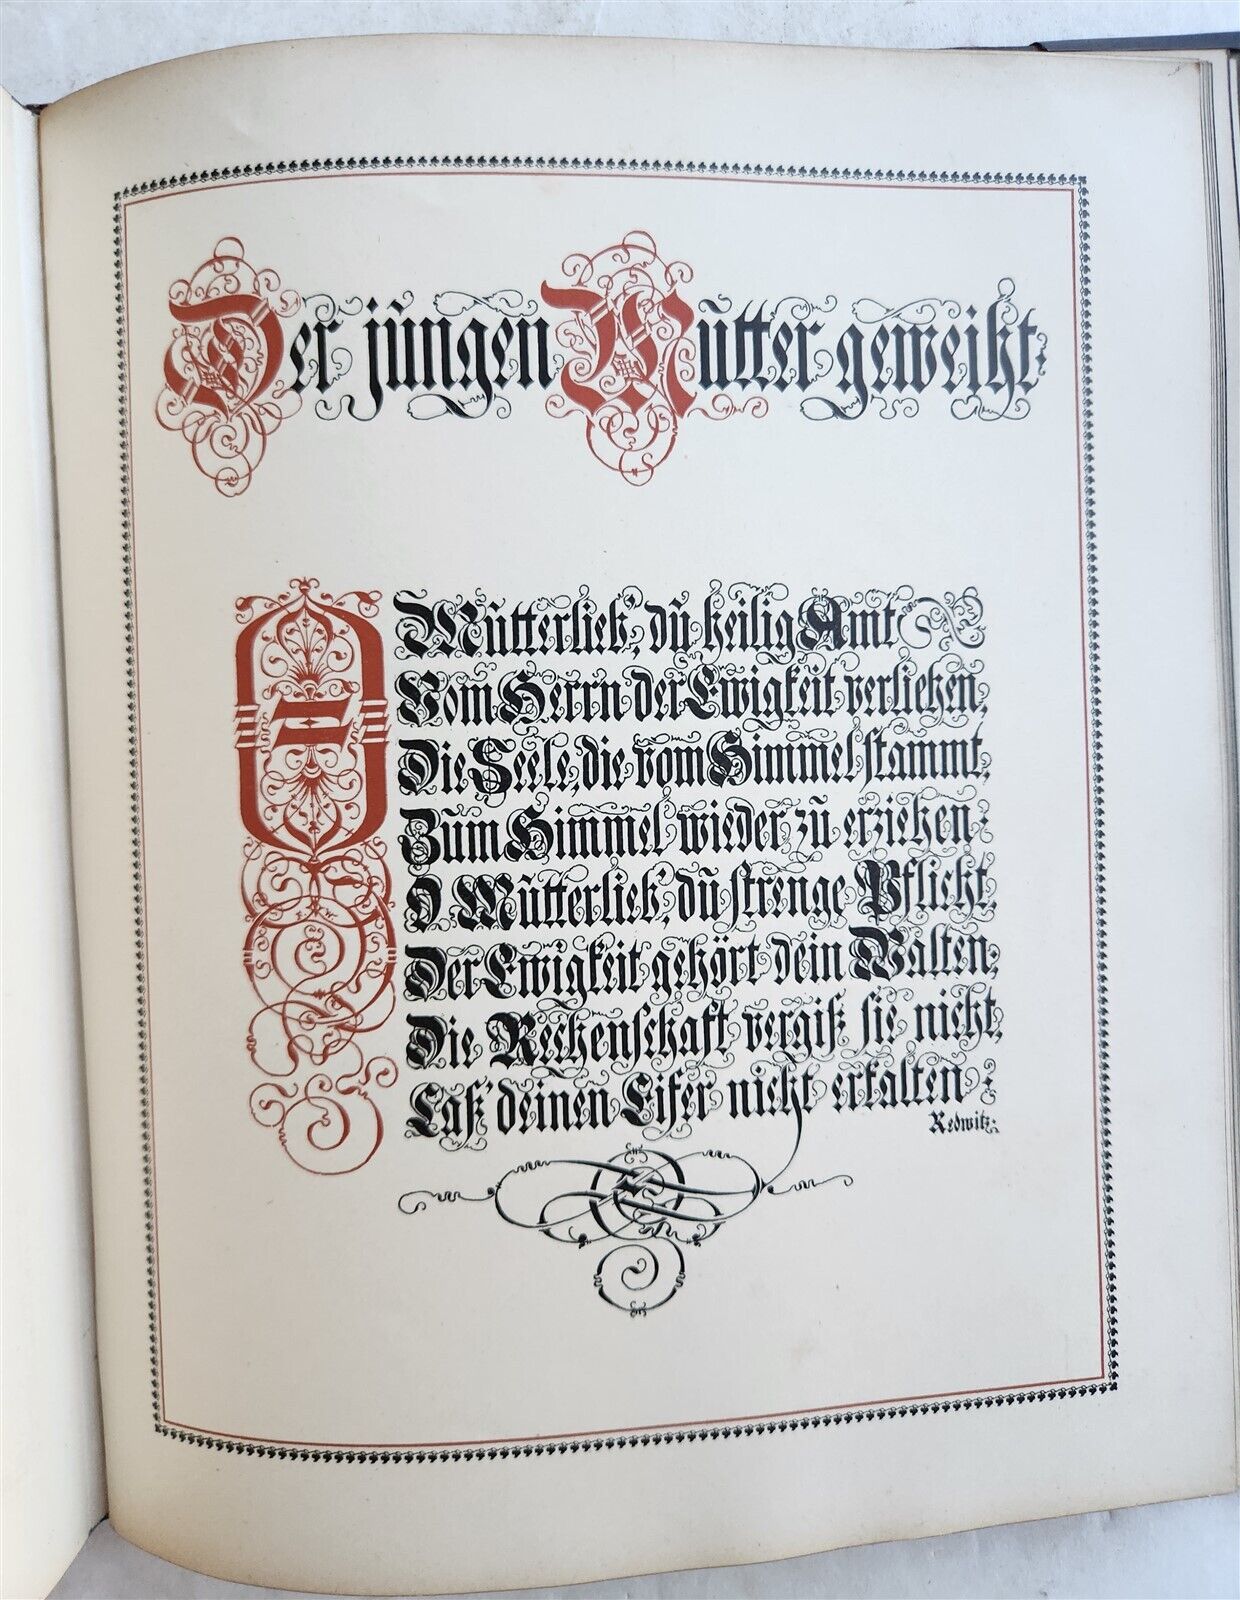 Der jungen Mutter geweiht.
O Mutterlieb', du heilig Amt
Vom Herrn der Ewigkeit verliehen,
Die Seele, die vom Himmel stammt,
Zum Himmel wieder zu erziehen:
O Mutterlieb', du strenge Pflicht,
Der Ewigkeit gehört dein Walten;
Die Rechenschaft vergiß sie nicht,
Laß' deinen Eifer nicht erkalten.
Redwitz.